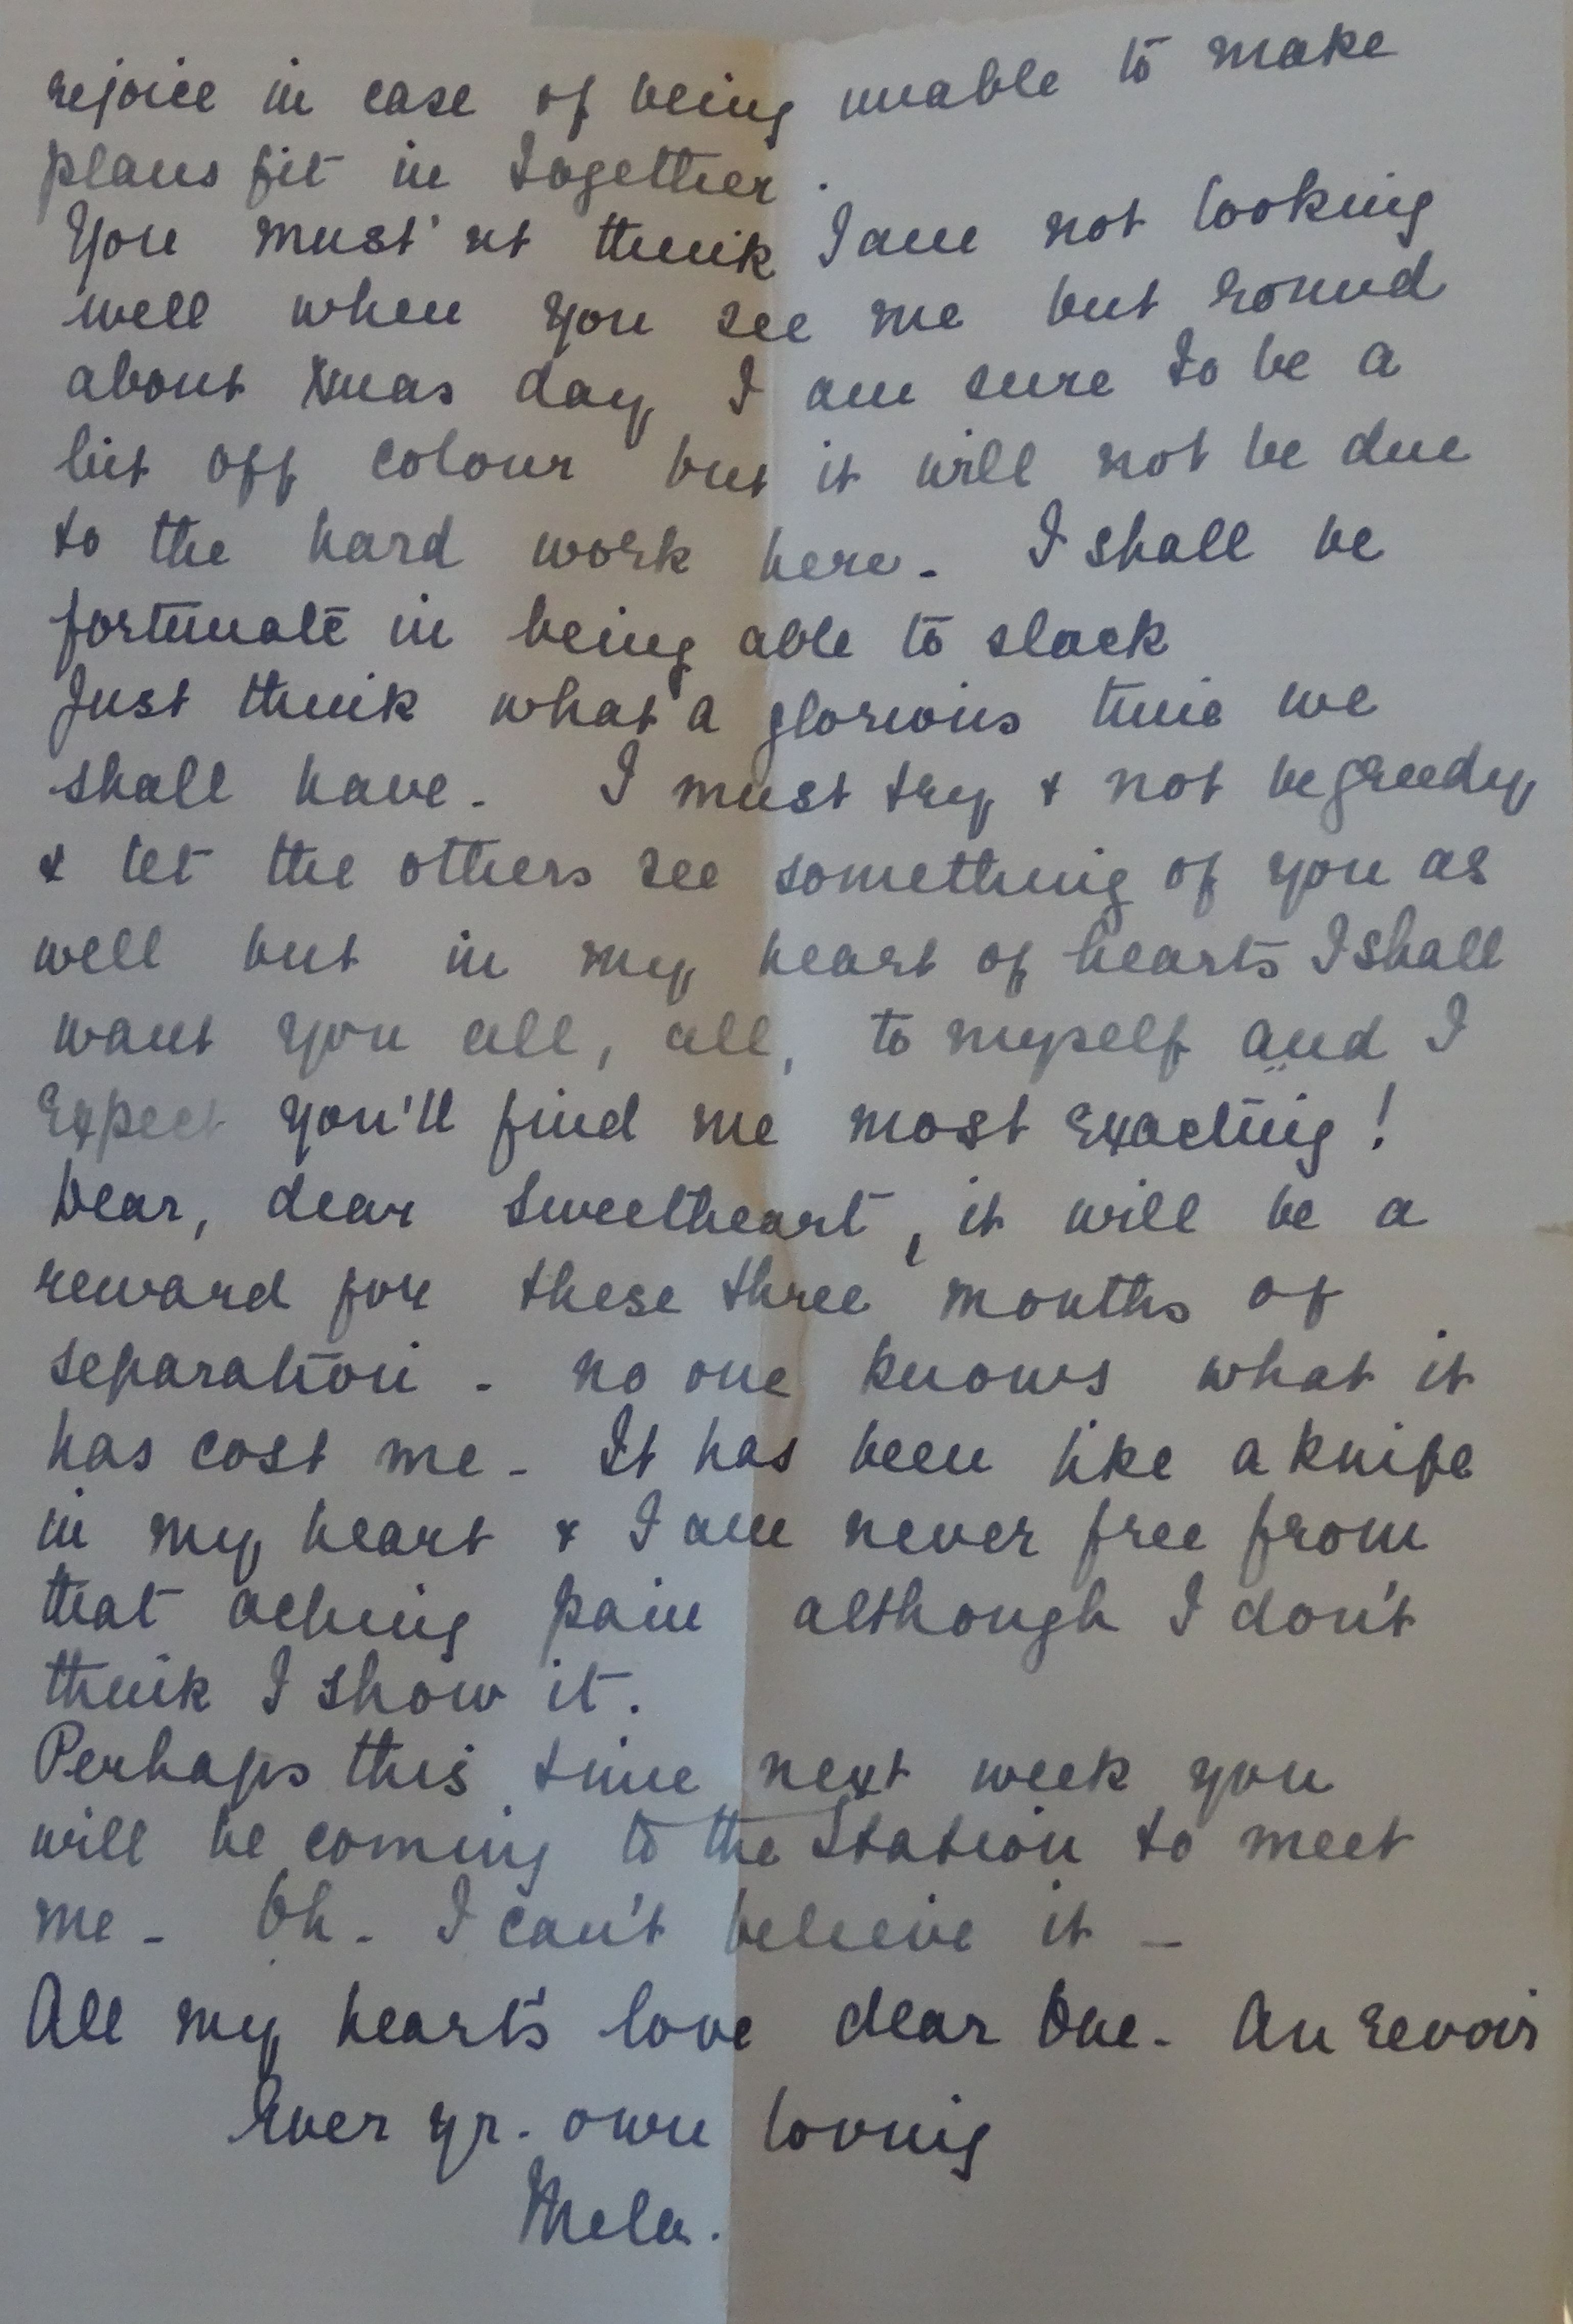 rejoice in case of being unable to make
plans fit in together.
You must'nt think I am not looking
well when you see me but round
about Xmas day I am sure to be a
bit off colour but it will not be due
to the hard work here - I shall be
fortunate in being able to slack
Just think what a glorious time we
shall have - I must try & not be greedy
& let the others see something of you as
well but in my heart of hearts I shall
want you all, all, to myself and I
expect you'll find me most exacting!
Dear, dear sweetheart, it will be a
reward for these three months of
separation - no one knows what it
has cost me - It has been like a knife
in my heart & I am never free from
that aching pain although I don't
think I show it.
Perhaps this time next week you
will be coming to the Station to meet
me - Oh - I can't believe it -
All my heart's love dear One - Au revoir
Ever yr. own loving
Mela.